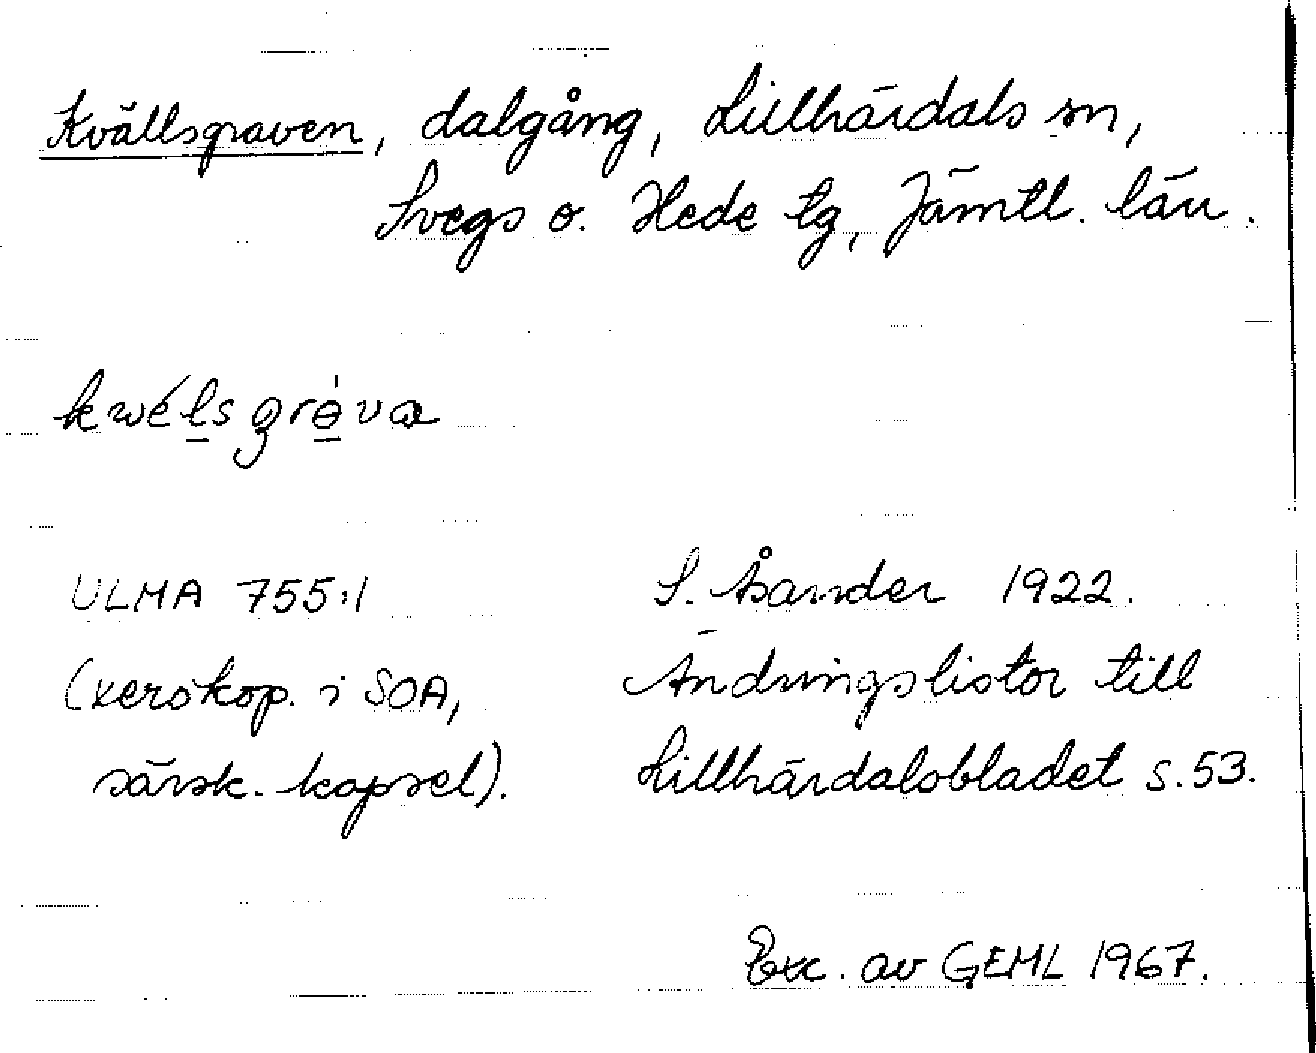 Kvällsgraven, dalgång, Lillhärdals sn,
Svegs o. Hede tg, Jämtl. län.
kwélsgrǝ̀va
ULMA 755:1 S. Åsander 1922.
(xerokop. i SOA, Ändringslistor till
särsk. kapsel). Lillhärdalsbladet s.53.
Exc. av GEHL 1967.